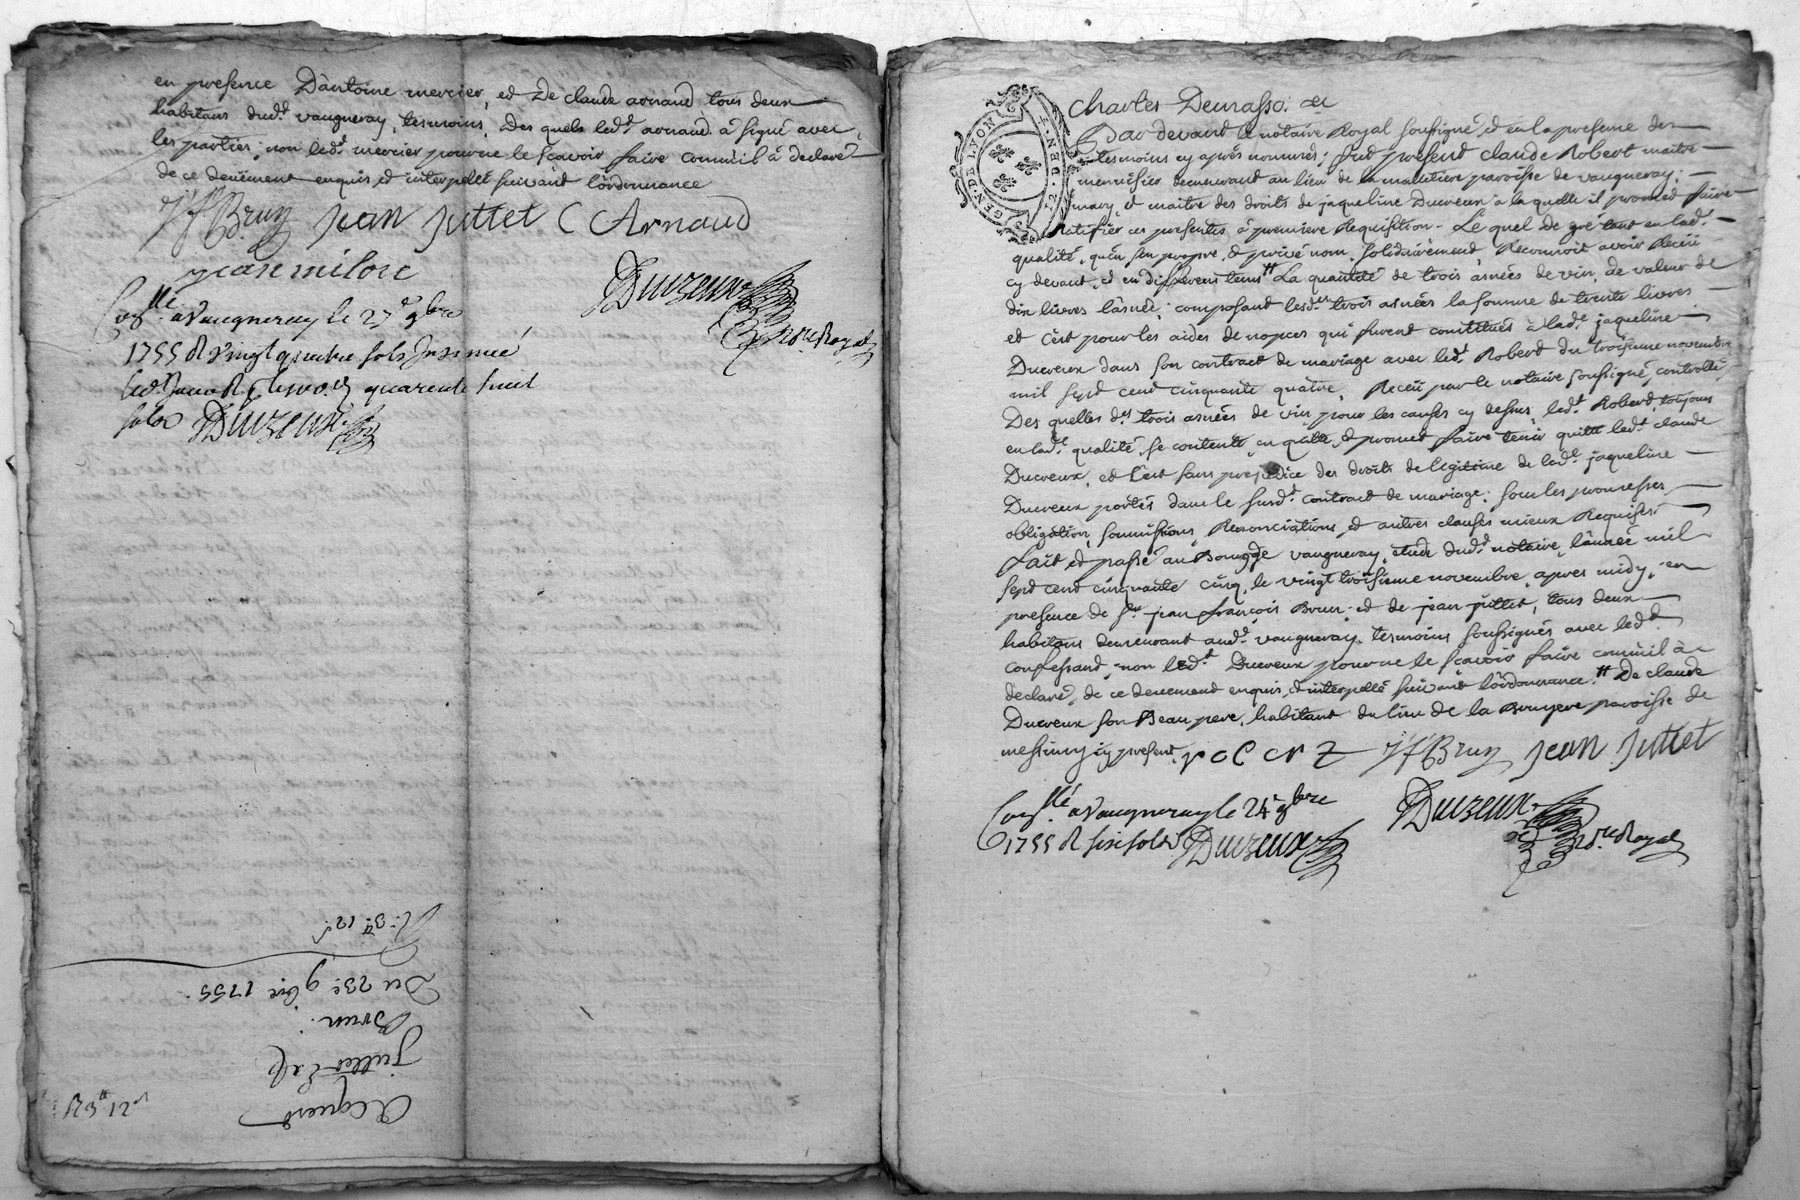 en presence D'antoine mercier, et De claude arnaud tous deux
habitans dud.t vaugneray, tesmoins, Des quels led.t arnaud â signé avec
les parties; non led.t mercier pour ne le sçavoir faire comm'il â declaré
de ce deuëment enquis et interpellé suivant l'ordonnance
JfBrun Jean Juttet C Arnaud
DuvzeuX
n.re Royal
Con.llé a Vaugneray le 27.e 9bre
1755 R vingt quatre sols
quarente huit
sols DuvzeuX
R. 3.# 12.s
Du 23.e 9bre 1755.
Brun.
Acquest
R 3# 12s
GEN. DE LYON
Charles
Par devant le notaire Royal soussigné, et en la presence des
tesmoins cy après nommés; fut présent claude Robert maitre
menuisier demeurant au lieu de la maletiere paroisse de vaugneray;
mary, et maitre des droits de jaqueline Ducreux a la quelle il promet faire
Ratifier ces presentes à première Requisition. Le quel de gré tant en lad.e
qualité, qu'en son propre, et privé nom, solidairement, Reconnoit avoir Receü
cy devant, et en differens tems # La quantité de trois asnées de vin, de valeur de
dix livres l'asnée; composant lesd.es trois asnées la somme de trente livres
et c'est pour les aides de nopces qui furent constitués à lad.e jaqueline
Ducreux dans son contract de mariage avec led.t Robert du troisieme novembre
mil sept cent cinquante quatre, Receü par le notaire soussigné, controllé,
Des quelles d.es trois asnées de vin, pour les causes cy dessus, led.t Robert, toujours
en lad.e qualité, se contente, en quitte, et promet faire tenir quitte led.t claude
Ducreux, et c'est sans prejudice des droits de legitime de lad.e jaqueline
Ducreux portés dans le susd.t contract de mariage; sous les promesses,
obligation, soumissions, Renonciations, et autres clauses mieux Requises
fait et passé au Bourg de vaugneray, etude dud.t notaire, l'année mil
sept cent cinquante cinq, le vingt troisieme novembre, apres midy, en
presence de s.r jean françois Brun, et de jean juttet, tous deux
habitans demeurant aud.t vaugneray, tesmoins soussignés avec led.t
confessant, non led.t Ducreux pour ne le sçavoir faire comm'il à
declaré, de ce deuement enquis, et interpellé suivant l'ordonnance. # De claude
Ducreux son Beau pere, habitant du lieu de la Bruyere paroisse de
messimy icy present. JfBrun Jean Juttet
DuvzeuX
n.re Royal
Con.llé a Vaugneray le 24.e 9bre
1755 R six sols DuvzeuX